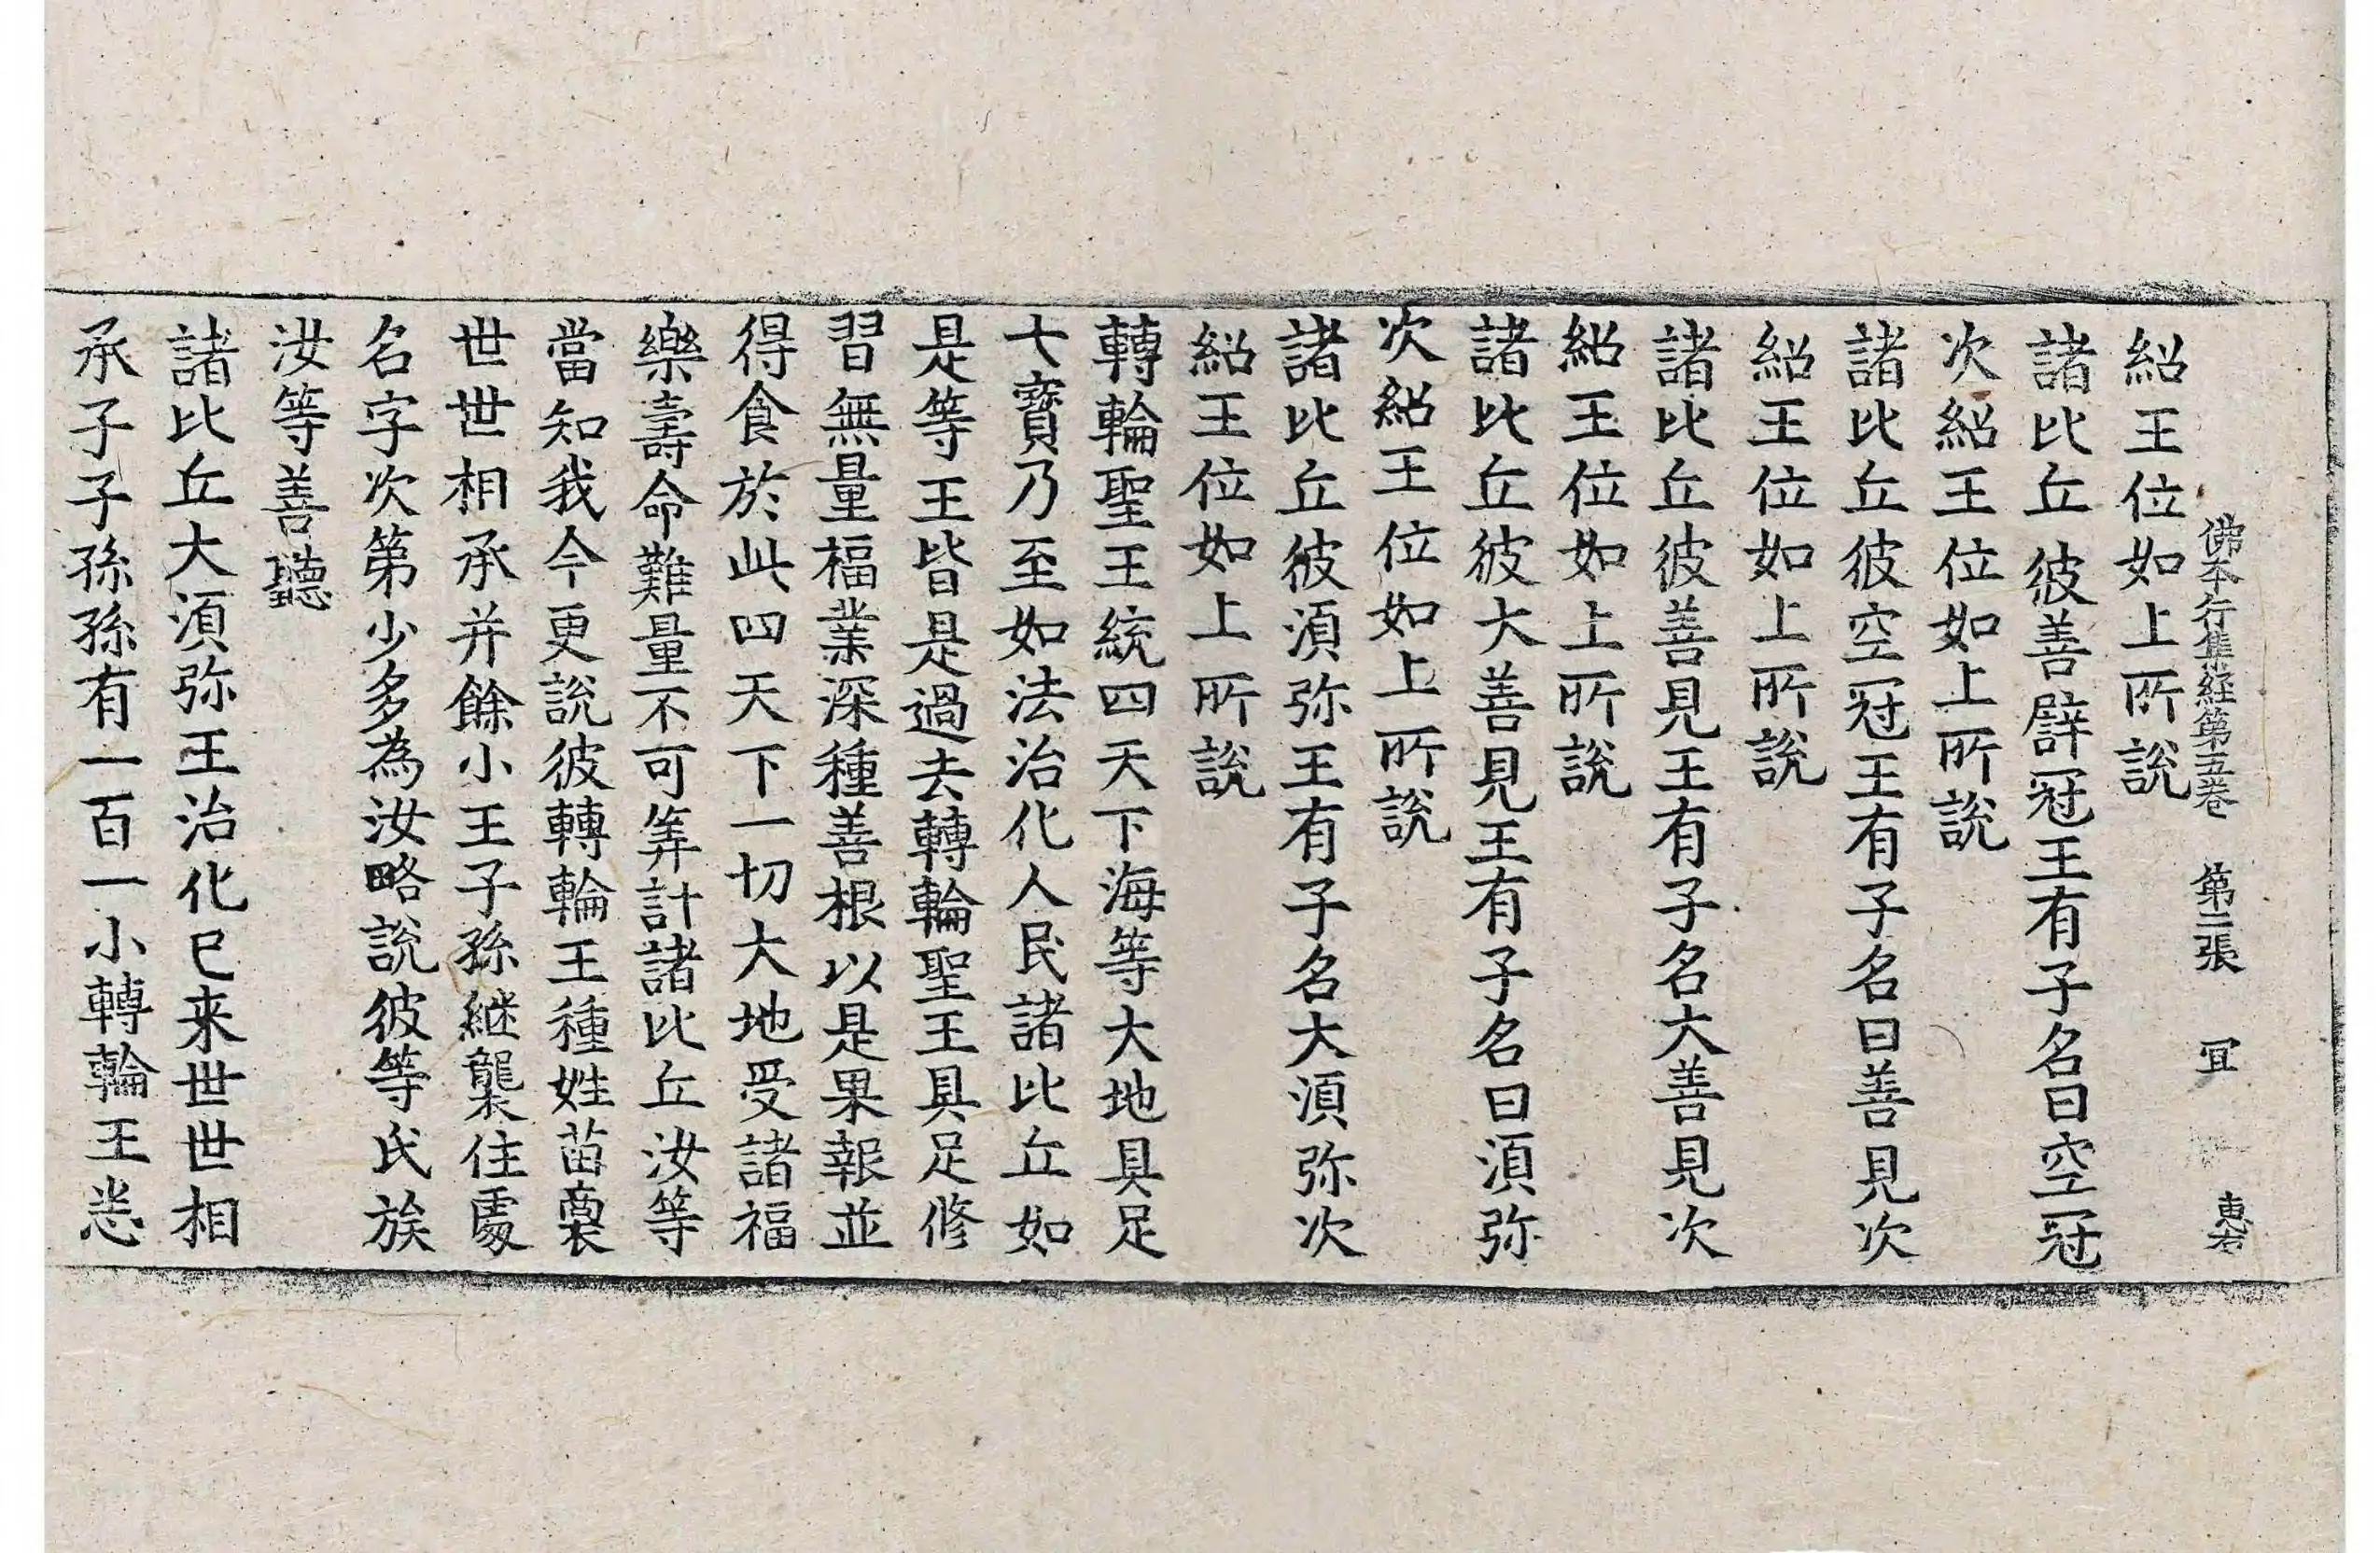 佛本行集経第五巻 第二張 冝 惠右
紹王位如上所說
諸比丘彼善辟冠王有子名曰空冠
次紹王位如上所說
諸比丘彼空冠王有子名曰善見次
紹王位如上所說
諸比丘彼善見王有子名大善見次
紹王位如上所說
諸比丘彼大善見王有子名曰湏弥
次紹王位如上所說
諸比丘彼湏弥王有子名大湏弥次
紹王位如上所說
轉輪聖王王統四天下海等大地具足
七寶乃至如法治化人民諸比丘如
是等王皆是過去轉輪聖王具足修
習無量福業深種善根以是果報並
得食於此四天下一切大地受諸福
樂壽命難量不可筭計諸比丘汝等
當知我今更說彼轉輪王種姓苗裔
世世相承并餘小王子孫継襲住處
名字次第少多為汝略說彼等氏族
汝等善聽
諸比丘大湏弥王治化已来世世相
承子子孫孫有一百一小轉輪王悉